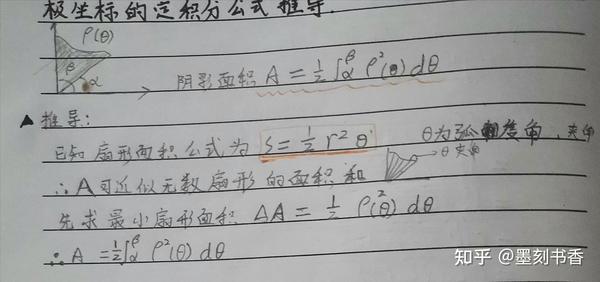 极坐标的定积分公式推导.
ρ(θ)
β
α
阴影面积 A = ½∫_α^β ρ²(θ) dθ
▲推导:
已知扇形面积公式为 S = ½ r² θ θ为弧度角、夹角
→θ 夹角
∴ A可近似无数扇形的面积和
先求最小扇形面积 ΔA = ½ ρ²(θ) dθ
∴ A = ½∫_α^β ρ²(θ) dθ
知乎 @墨刻书香